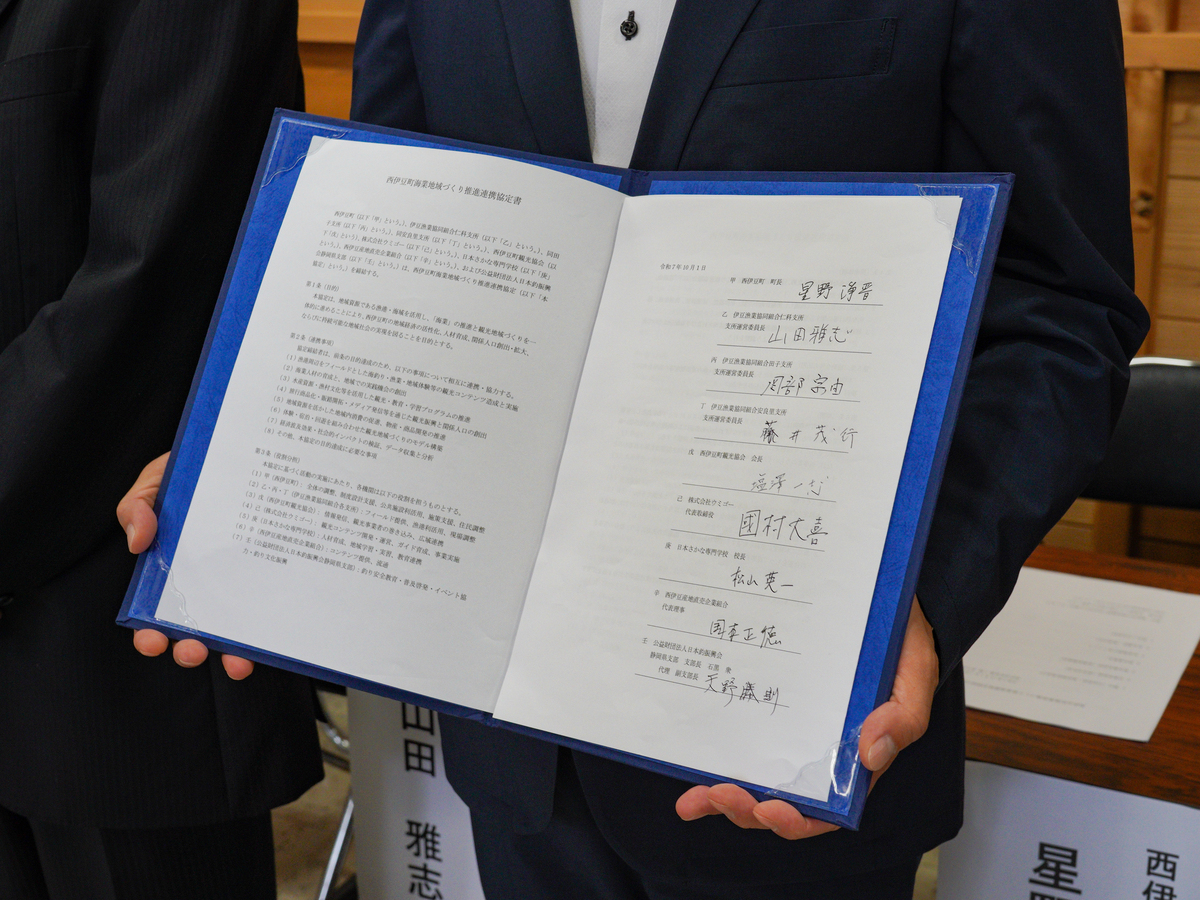 西伊豆町海業地域づくり推進連携協定書
西伊豆町（以下「甲」という。）、伊豆漁業協同組合仁科支所（以下「乙」という。）、同田
子支所（以下「丙」という。）、同安良里支所（以下「丁」という。）、西伊豆町観光協会（以
下「戊」という。）、株式会社ウミゴー（以下「己」という。）、日本さかな専門学校（以下「庚」
という。）、西伊豆産地直売企業組合（以下「辛」という。）、および公益財団法人日本釣振興
会静岡県支部（以下「壬」という。）は、西伊豆町海業地域づくり推進連携協定（以下「本
協定」という。）を締結する。
第1条（目的）
本協定は、地域資源である漁港・海域を活用し、「海業」の推進と観光地域づくりを一
体的に進めることにより、西伊豆町の地域経済の活性化、人材育成、関係人口創出・拡大、
ならびに持続可能な地域社会の実現を図ることを目的とする。
第2条（連携事項）
協定締結者は、前条の目的達成のため、以下の事項について相互に連携・協力する。
（1）漁港周辺をフィールドとした海釣り・漁業・地域体験等の観光コンテンツ造成と実施
（2）海業人材の育成と、地域での実践機会の創出
（3）水産資源・漁村文化等を活用した観光・教育・学習プログラムの推進
（4）旅行商品化・販路開拓・メディア発信等を通じた観光振興と関係人口の創出
（5）地域資源を活かした地域内消費の促進、物産・商品開発の推進
（6）体験・宿泊・回遊を組み合わせた観光地域づくりのモデル構築
（7）経済波及効果・社会的インパクトの検証、データ収集と分析
（8）その他、本協定の目的達成に必要な事項
第3条（役割分担）
本協定に基づく活動の実施にあたり、各機関は以下の役割を担うものとする。
（1）甲（西伊豆町）：全体の調整、制度設計支援、公共施設利活用、施策支援、住民調整
（2）乙・丙・丁（伊豆漁業協同組合各支所）：フィールド提供、漁港利活用、現場調整
（3）戊（西伊豆町観光協会）：情報発信、観光事業者の巻き込み、広域連携
（4）己（株式会社ウミゴー）：観光コンテンツ開発・運営、ガイド育成、事業実施
（5）庚（日本さかな専門学校）：人材育成、地域学習・実習、教育連携
（6）辛（西伊豆産地直売企業組合）：コンテンツ提供、流通
（7）壬（公益財団法人日本釣振興会静岡県支部）：釣り安全教育・普及啓発・イベント協
力・釣り文化振興
令和7年10月1日
甲 西伊豆町 町長
星野 浄晋
乙 伊豆漁業協同組合仁科支所
支所運営委員長
山田雅志
丙 伊豆漁業協同組合田子支所
支所運営委員長
岡部宗由
丁 伊豆漁業協同組合安良里支所
支所運営委員長
藤井茂行
戊 西伊豆町観光協会 会長
塩澤一
己 株式会社ウミゴー
代表取締役
國村大喜
庚 日本さかな専門学校 校長
松山英一
辛 西伊豆産地直売企業組合
代表理事
正徳
壬 公益財団法人日本釣振興会
静岡県支部 支部長 石黒 衆
代理 副支部長
天野藤則
山田 雅志
西伊
星野